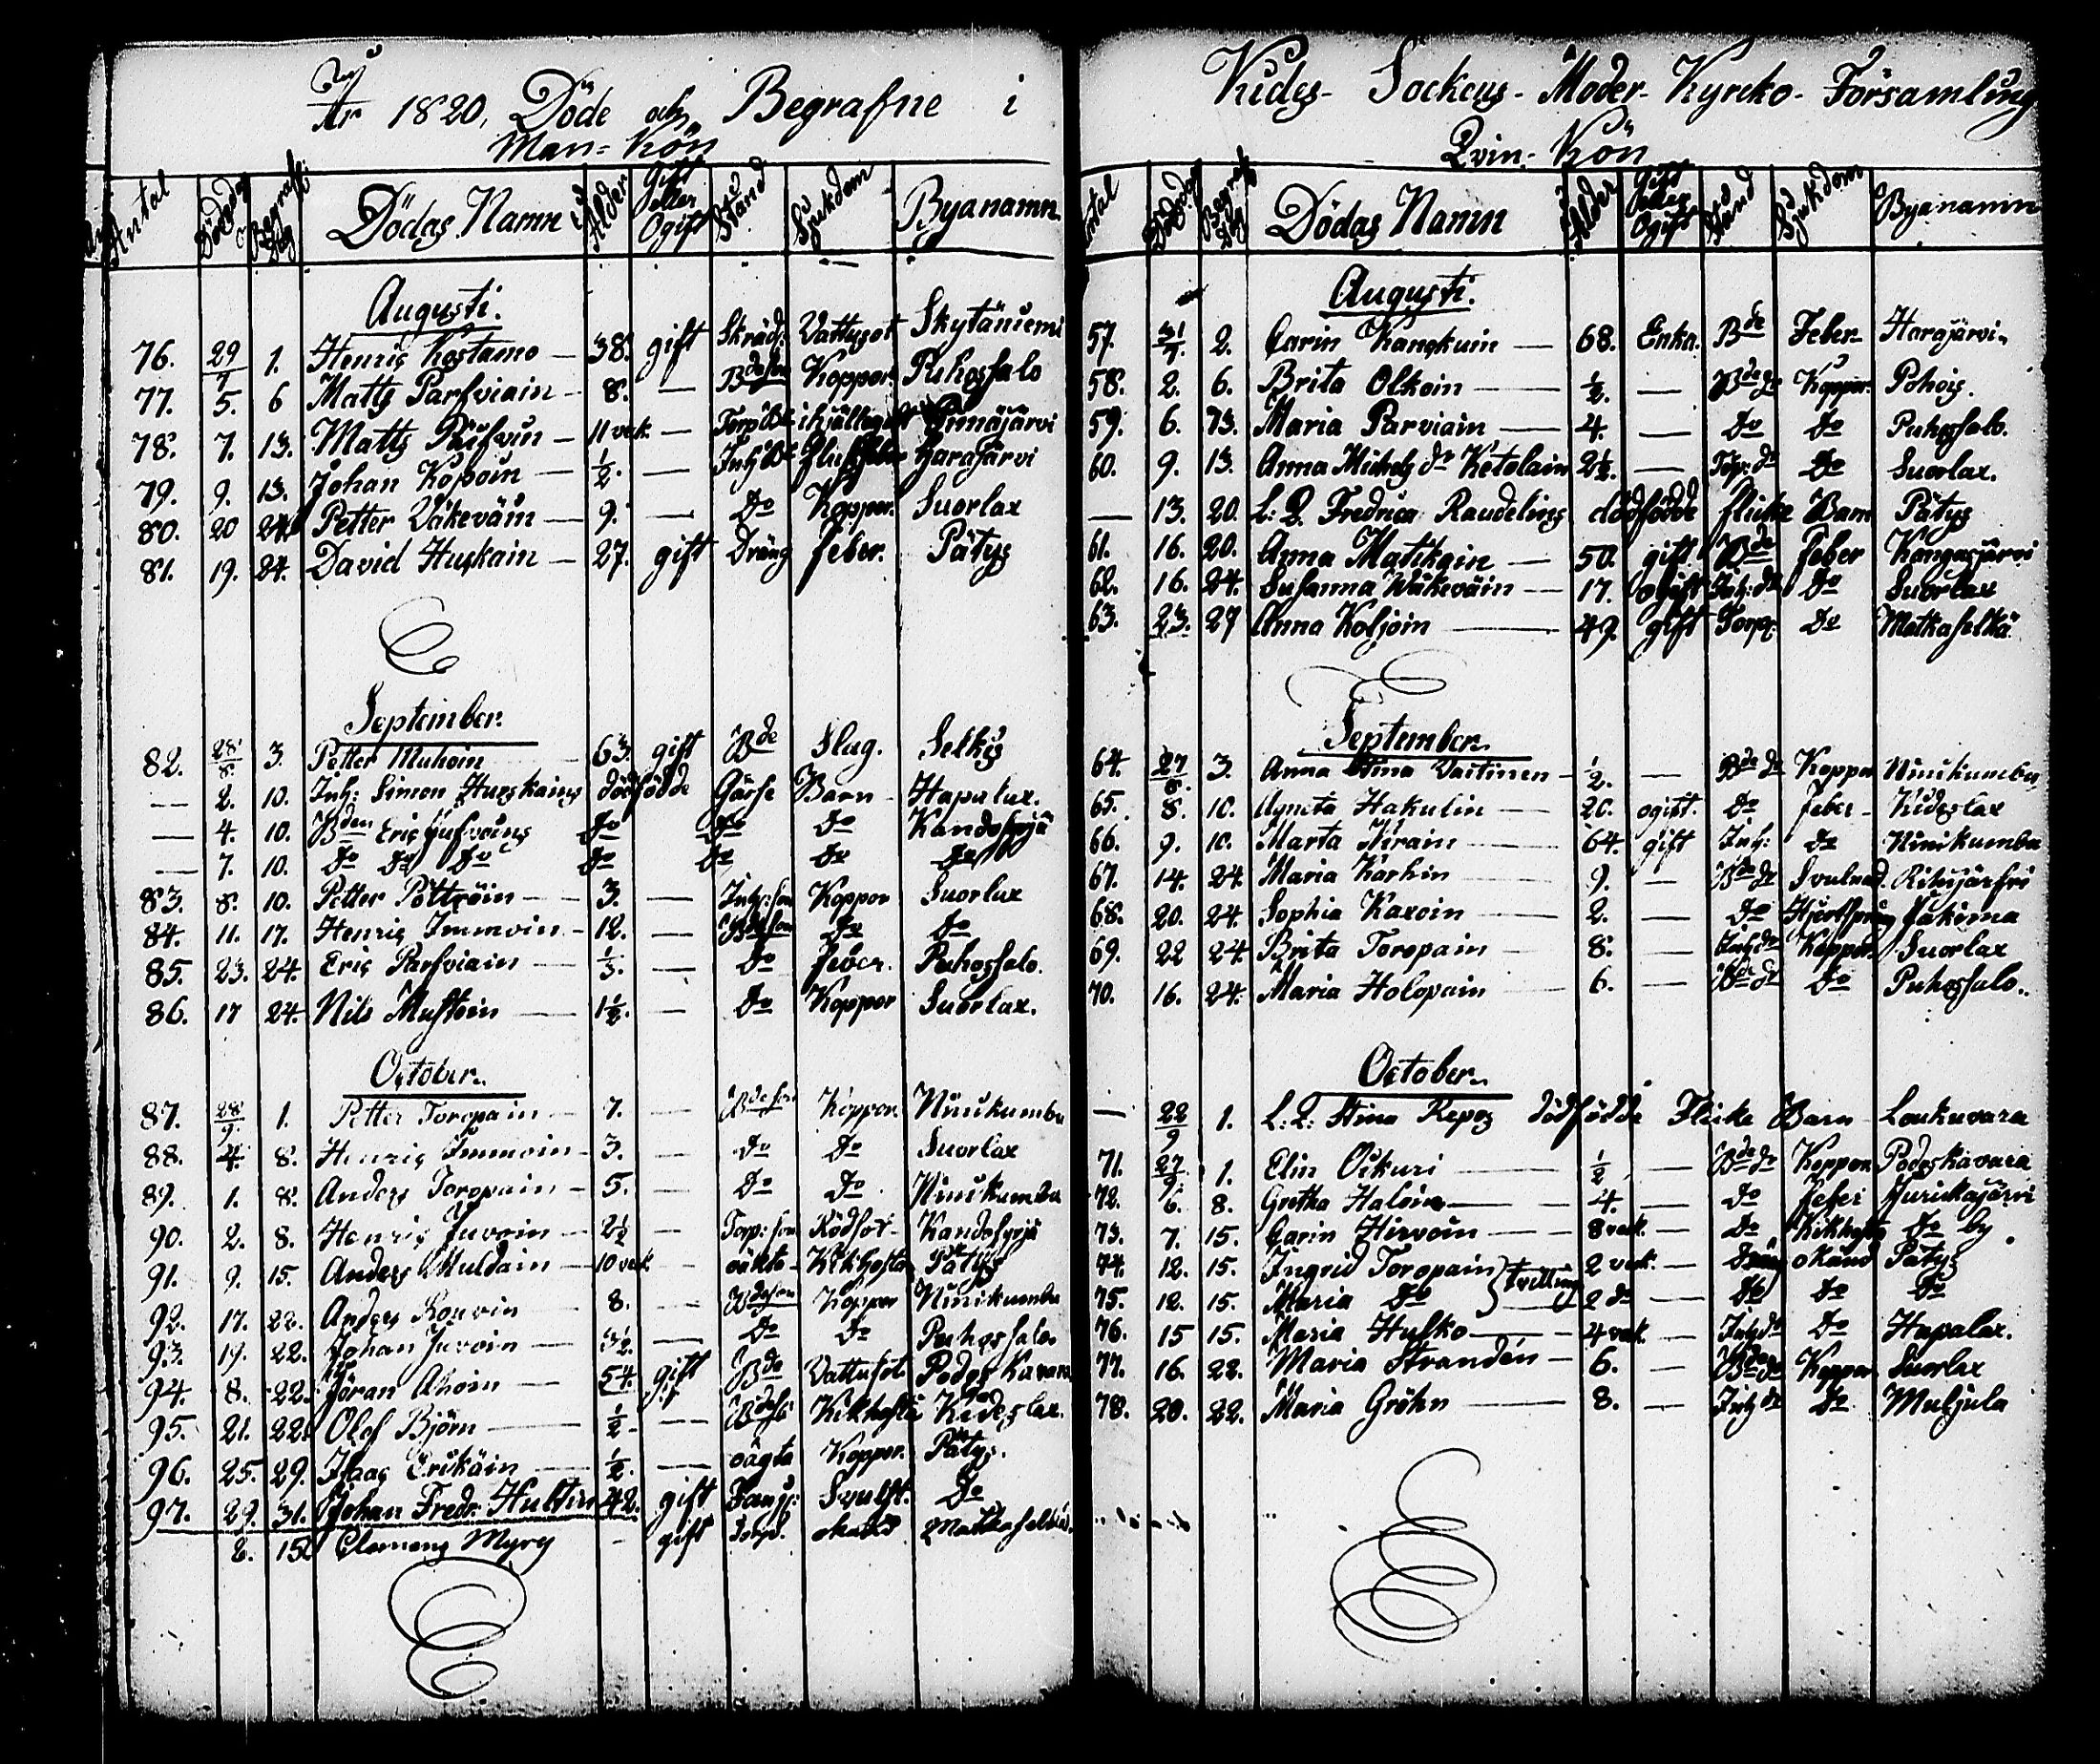 År 1820, Döde och Begrafne i
Man-Kön
Antal Dödsdag Begrafn: Dag Dödas Namn Ålder Gift eller Ogift Stånd Sjukdom Byanamn
Augusti.
76. 29/7 1. Henric Kostamo — 38. gift Skräd: Vattusot Skytäniemi
77. 5. 6 Matts Parfviain — 8. — Bdeson Koppor Puhossalo
78. 7. 13. Matts — 11 vek. — ihjälleg
79. 9. 13. Johan Kopoin — 1/2. — Harajärvi
80. 20 24. Petter Väkeväin — 9. — Do Koppor. Suorlax
81. 19. 24. David Huskain — 27. gift Dräng feber. Pätys
September.
82. 28/8. 3. Petter Muhoin 63. gift Bde Slag. Selkis
— 2. 10. Inh: Simon Hurskains dödfödde Gåsse Barn Hapalax.
— 4. 10. Bden Eric Jufvoins Do Do Do Kandosyrjä
— 7. 10. Do Do Do Do Do Do Do
83. 8. 10. Petter Pöttröin — 3. — Inhs: son Koppor Suorlax
84. 11. 17. Henric Immoin — 12. — Bdeson Do Do
85. 23. 24 Eric Parfviain — 1/3. — Do feber. Puhossalo.
86. 17 24. Nils Mustoin — 1 1/2. — Do Koppor Suorlax.
October.
87. 28/9. 1. Petter Toropain — 7. — Bdeson Koppor. Niinikumbu
88. 4. 8. Henric Immoin — 3. — Do Do Suorlax
89. 1. 8. Anders Toropain — 5. — Do Do Niinikumbu
90. 2. 8. Henric Juvoin — 2 1/2 — Torp: son Rödsot Kandosyrjä
91. 9. 15. Anders Muldain — 10 vek — oäkta Kikhosta Pätys
92. 17. 22. Anders 8. — Bdeson Koppor Niinikumbu
93. 19. 22. Johan Juvoin — 3 1/2. — Do Do Puhossalo.
94. 8. 22. Jöran Ahoin — 54. gift Bde Vattusot. Podoskavara
95. 21. 22. Olof Björn — 1/2 — Bdeso Kikhosta Kideslax.
96. 25. 29. Isaac Erikäin — 1/2. — oägta Koppor. Pätys.
97. 29. 31. Johan Fredr: Hultin 42. gift Svulst. Do
2. 15 Clemens Myry - gift Torp. okänd Matkaselkä.
Kides- Sockens- Moder- Kyrcko- Församling
Qvin- Kön
Antal Dödsdag Begrafn: Dag Dödas Namn Ålder Gift eller Ogift Stånd Sjukdom Byanamn
Augusti.
57. 31/7. 2. Carin Kanskuin — 68. Enka. Bde Feber Harajärvi
58. 2. 6. Brita Olkoin — 1/2. — Bdedr Koppor. Pohois.
59. 6. 13. Maria Parviain — 4. — Do Do Puhossalo.
60. 9. 13. Anna Michelsdr Ketolain 2 1/2. — Torp: dr Do Suorlax.
— 13. 20. L: D. Fredrica Raudelins dödfödde flicke Barn Pätys
61. 16. 20. Anna Matikain — 50. gift. Bde Feber Kangasjärvi
62. 16. 24. Susanna Wäkeväin — 17. ogift Inh: dr Do Suorlax
63. 23. 27 Anna Koljoin — 49. gift Torp: Do Matkaselkä
September.
64. 27/8. 3. Anna Stina Vaitinen — 1/2. — Bdedr Koppor Niinikumbu
65. 8. 10. Agneta Hakulin — 20. ogift. Do feber Kideslax
66. 9. 10. Marta Hirain — 64. gift Inh: Do Niinikumbu
67. 14. 24. Maria Karhin — 9. — Bdedr Svulnad. Rihijärfvi
68. 20. 24. Sophia Kaxoin — 2. — Do Hjertspång Jakima
69. 22 24. Brita Toropain — 8. — Inhdr Koppor. Suorlax
70. 16. 24. Maria Holopain 6. — Bdedr Do Puhossalo.
October.
— 22/9 1. L: D: Stina Repos dödfödde Flicke Barn Loukuvara
71. 27/9. 1. Elin Oikuri — 1/2 — Bdedr Koppor. Podoskavara
72. 6. 8. Gretha Haloin — 4. — Do feber Juurikajärvi
73. 7. 15. Carin Hirvoin — 8 vek. — Do Kikhosta Do by
74. 12. 15. Ingrid Toropain } tvilling 2 vek. — Dräng okänd Pätys
75. 12. 15. Maria Do 2 do — Do Do Do
76. 15 15. Maria Hulko — 4 vek. — Inhdr Do Hapalax.
77. 16. 22. Maria Strandén — 6. — Bdedr Koppor Suorlax
78. 20. 22. Maria Gröhn — 8. — Inhdr Do Muljula